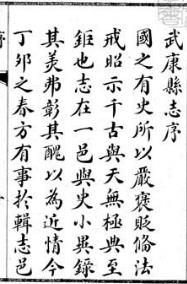 武康縣志序
國之有史所以嚴褒貶俻法
戒昭示千古與天無極典至
鉅也志在一邑與史小異錄
其美弗彰其醜以為近情今
丁夘之春方有事於輯志邑